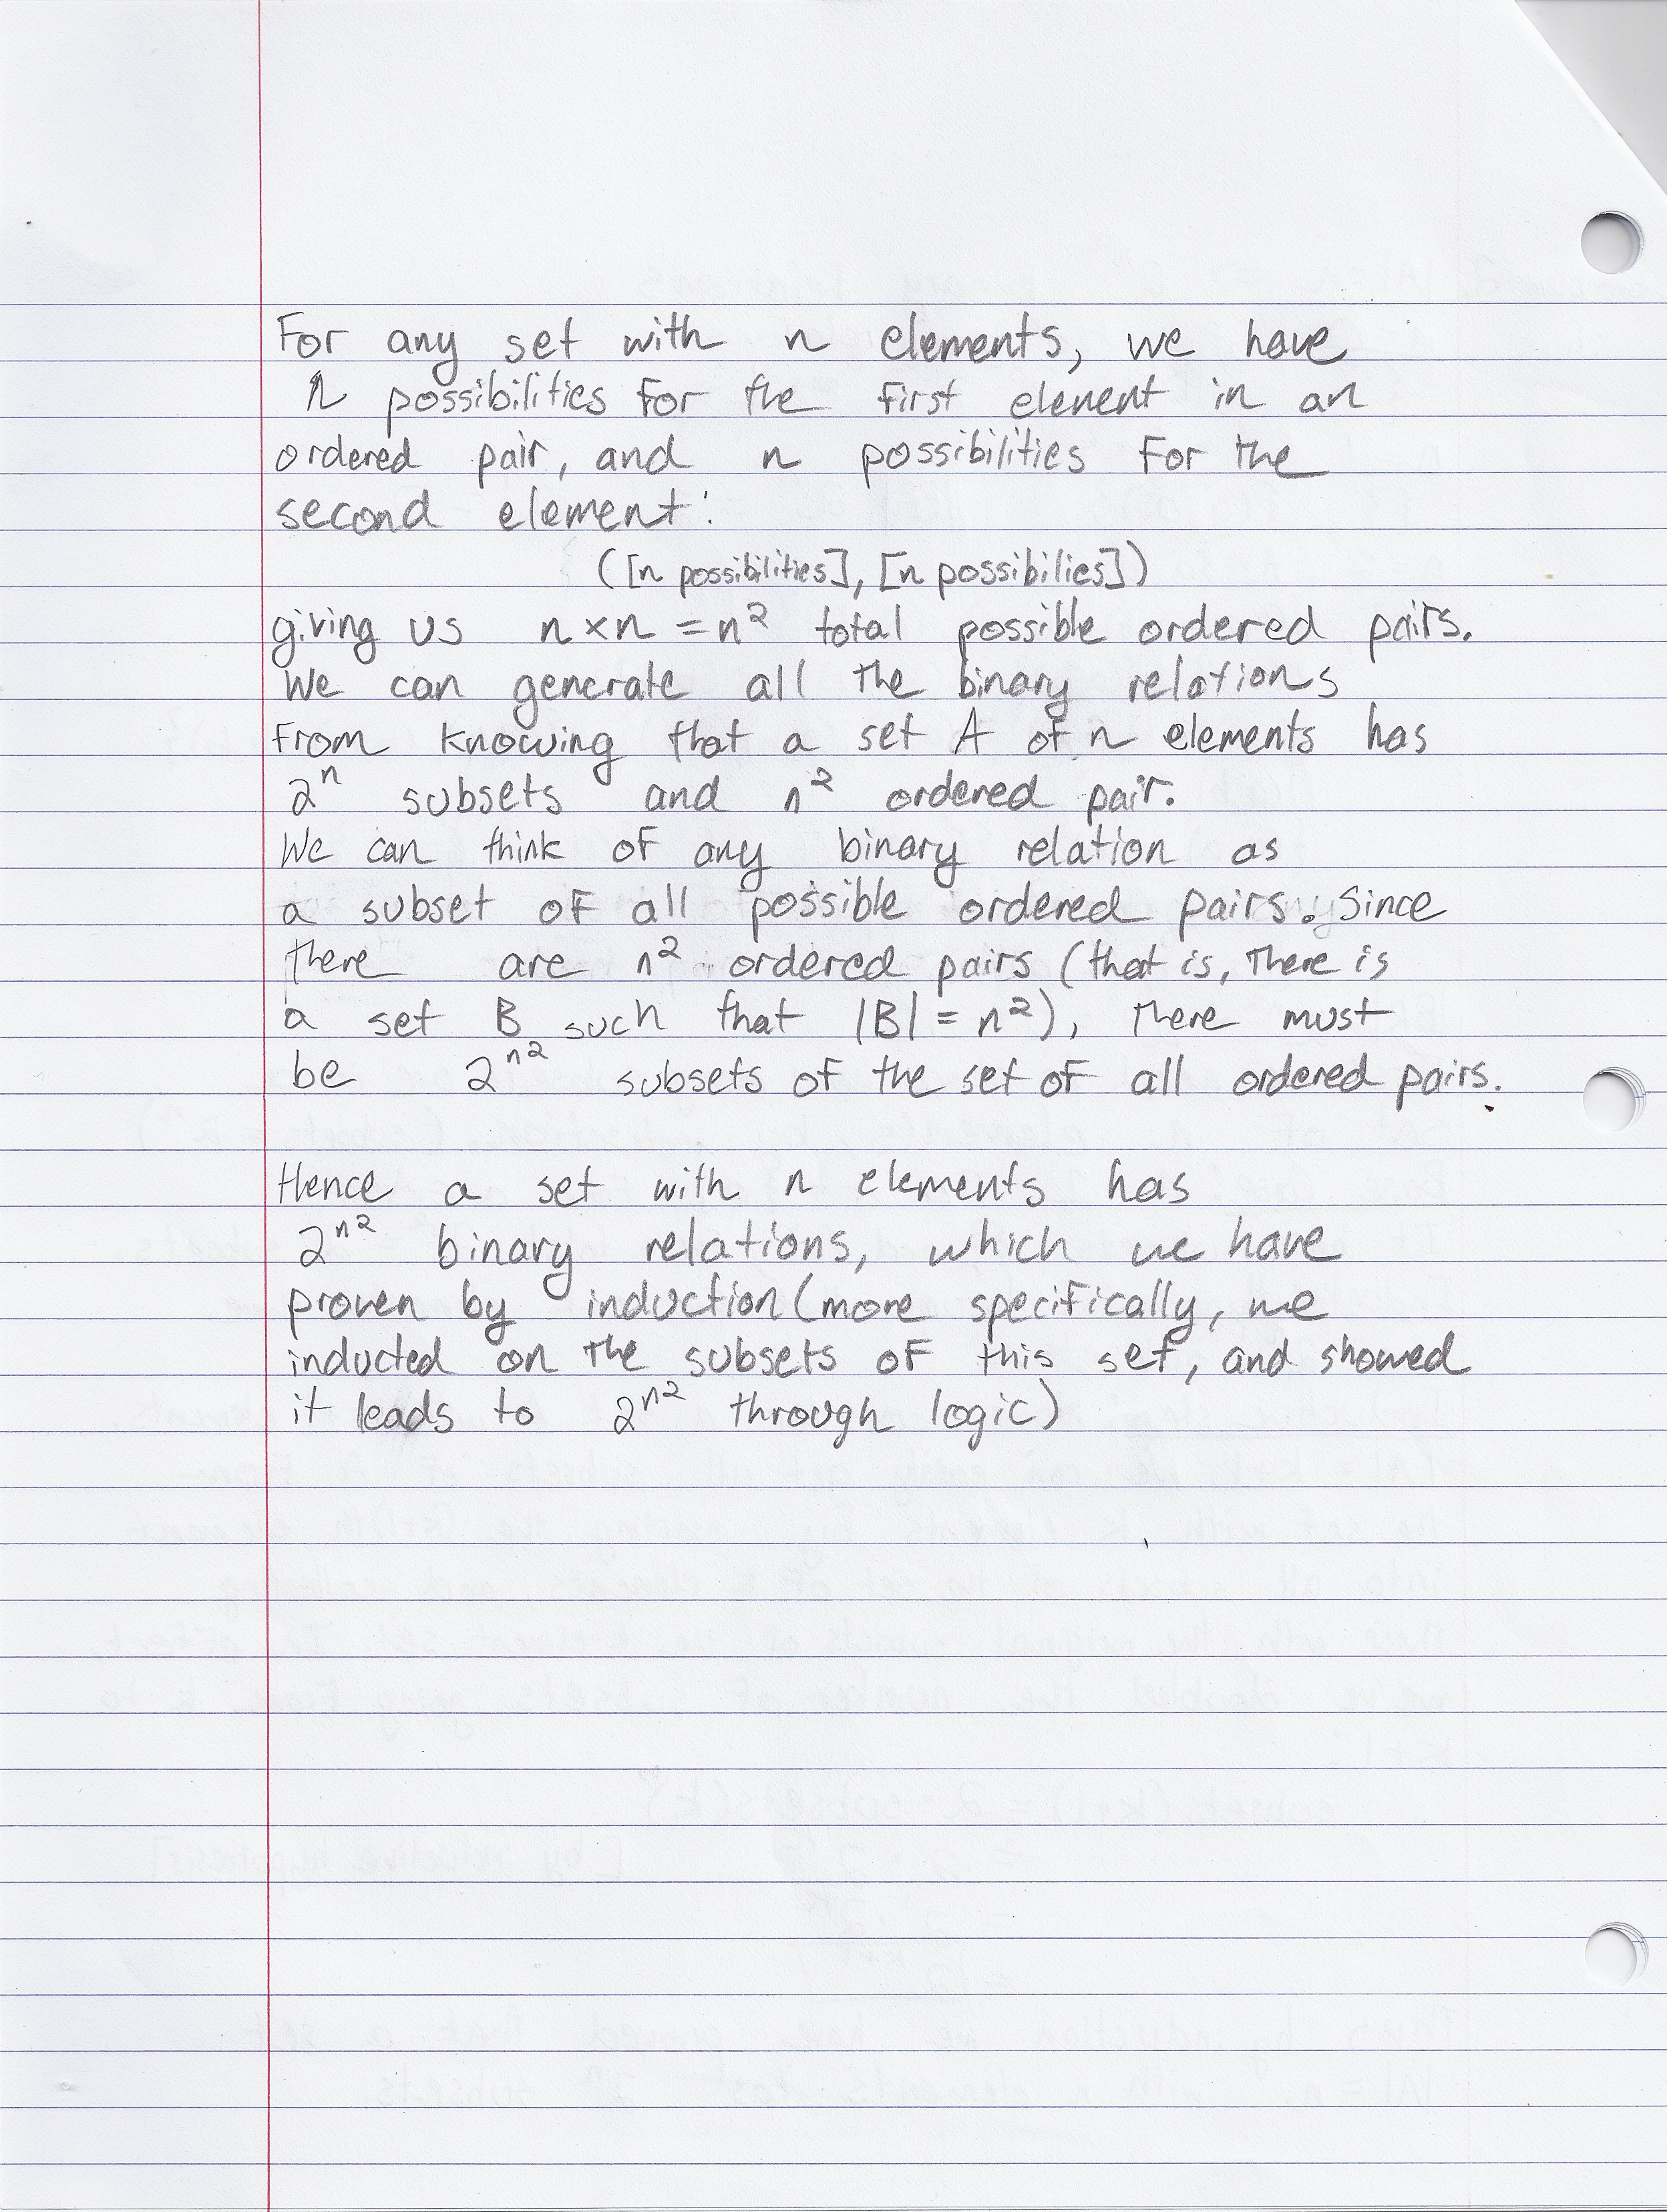 For any set with n elements, we have
n possibilities for the first element in an
ordered pair, and n possibilities for the
second element:
([n possibilities], [n possibilies])
giving us n × n = n² total possible ordered pairs.
We can generate all the binary relations
from knowing that a set A of n elements has
2ⁿ subsets and n² ordered pair.
We can think of any binary relation as
a subset of all possible ordered pairs. Since
there are n² ordered pairs (that is, there is
a set B such that |B| = n²), there must
be 2^n² subsets of the set of all ordered pairs.
Hence a set with n elements has
2^n² binary relations, which we have
proven by induction (more specifically, we
inducted on the subsets of this set, and showed
it leads to 2^n² through logic)